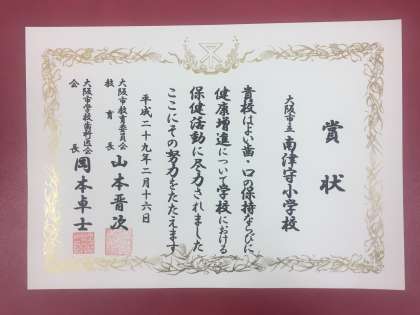 賞状
大阪市立 南津守小学校
貴校はよい歯・口の保持ならびに
健康増進について学校における
保健活動に尽力されました
ここにその努力をたたえます
平成二十九年二月十六日
大阪市教育委員会
教育長 山本晋次
大阪市学校歯科医会
会長 岡本卓士